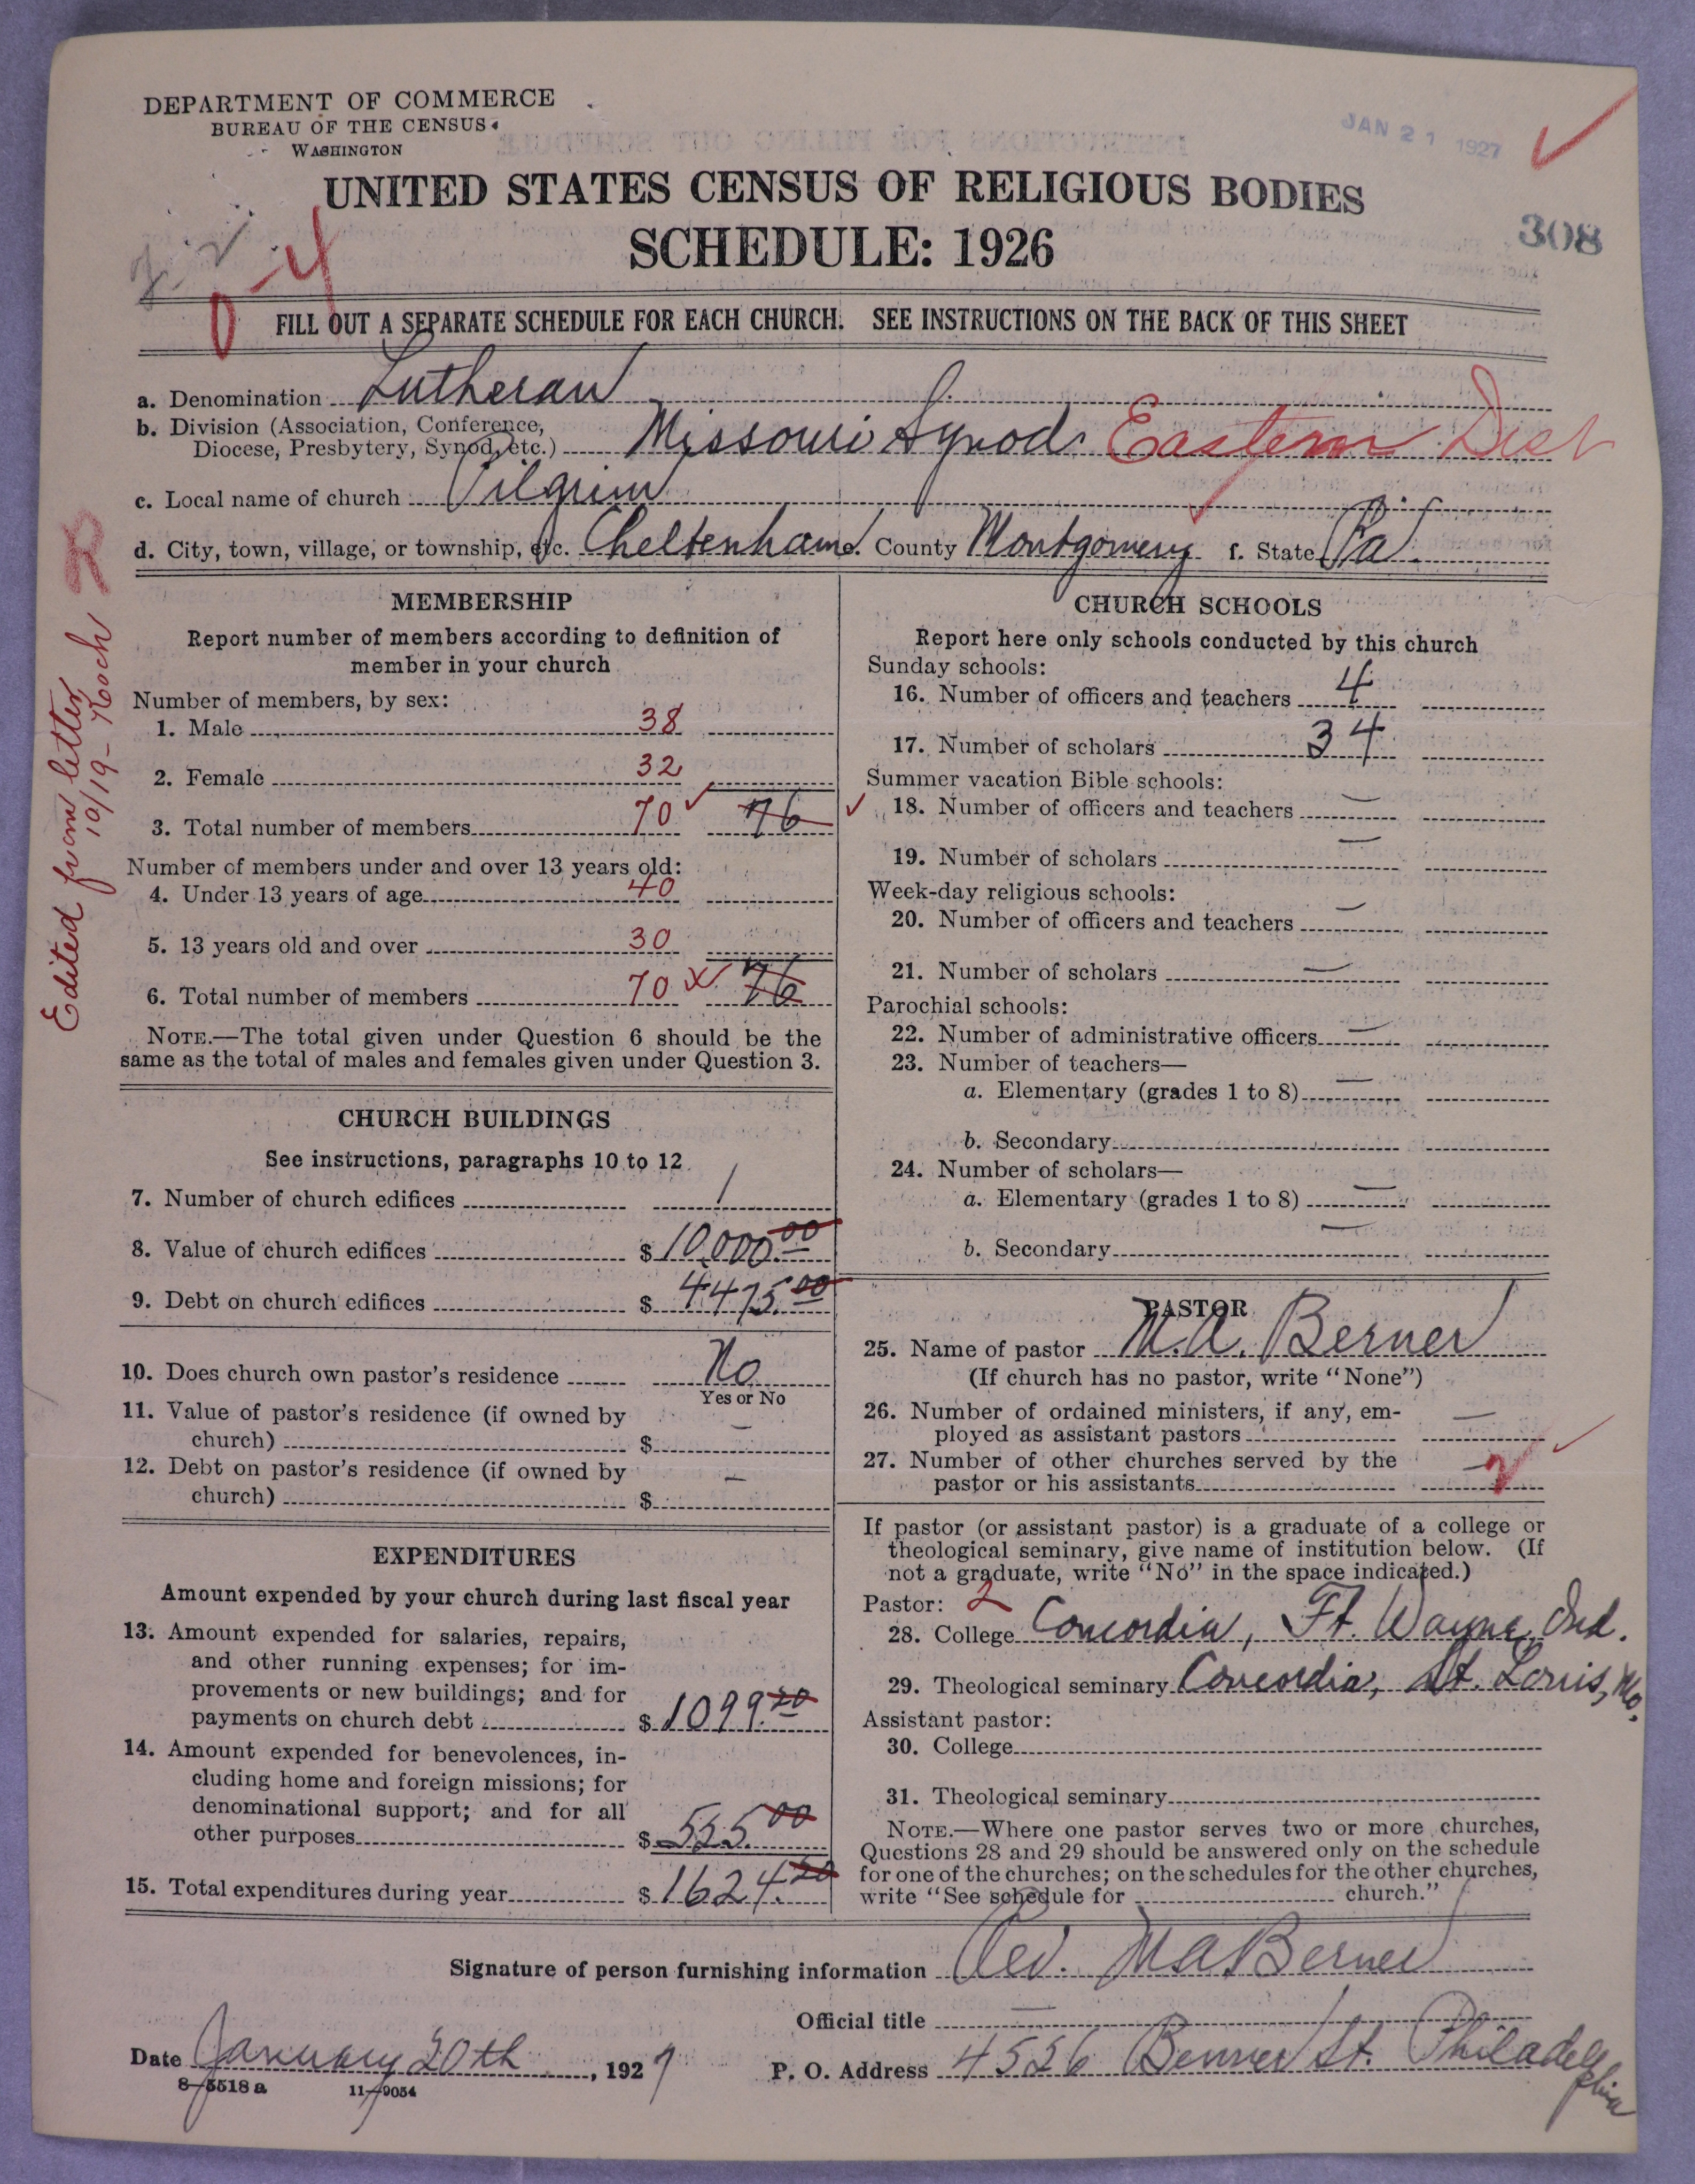 DEPARTMENT OF COMMERCE
BUREAU OF THE CENSUS
WASHINGTON
JAN 21 1927
UNITED STATES CENSUS OF RELIGIOUS BODIES
SCHEDULE: 1926
308
FILL OUT A SEPARATE SCHEDULE FOR EACH CHURCH. SEE INSTRUCTIONS ON THE BACK OF THIS SHEET
a. Denomination Lutheran
b. Division (Association, Conference,
Diocese, Presbytery, Synod, etc.) Missouri Synod Eastern Dist
c. Local name of church Pilgrim
d. City, town, village, or township, etc. Cheltenham e. County Montgomery f. State Pa.
Edited from letter
10/19 - Koch
MEMBERSHIP
Report number of members according to definition of
member in your church
Number of members, by sex:
1. Male 38
2. Female 32
3. Total number of members 70 76
Number of members under and over 13 years old:
4. Under 13 years of age 40
5. 13 years old and over 30
6. Total number of members 70 76
NOTE.—The total given under Question 6 should be the
same as the total of males and females given under Question 3.
CHURCH BUILDINGS
See instructions, paragraphs 10 to 12
7. Number of church edifices 1
8. Value of church edifices $10,000.00
9. Debt on church edifices $4475.00
10. Does church own pastor's residence No
Yes or No
11. Value of pastor's residence (if owned by
church) $ —
12. Debt on pastor's residence (if owned by
church) $ —
EXPENDITURES
Amount expended by your church during last fiscal year
13. Amount expended for salaries, repairs,
and other running expenses; for im-
provements or new buildings; and for
payments on church debt $1099.20
14. Amount expended for benevolences, in-
cluding home and foreign missions; for
denominational support; and for all
other purposes $525.00
15. Total expenditures during year $1624.20
CHURCH SCHOOLS
Report here only schools conducted by this church
Sunday schools:
16. Number of officers and teachers 4
17. Number of scholars 34
Summer vacation Bible schools:
18. Number of officers and teachers —
19. Number of scholars —
Week-day religious schools:
20. Number of officers and teachers —
21. Number of scholars —
Parochial schools:
22. Number of administrative officers —
23. Number of teachers—
a. Elementary (grades 1 to 8) —
b. Secondary
24. Number of scholars—
a. Elementary (grades 1 to 8) —
b. Secondary —
PASTOR
25. Name of pastor M.A. Berner
(If church has no pastor, write "None")
26. Number of ordained ministers, if any, em-
ployed as assistant pastors —
27. Number of other churches served by the
pastor or his assistants —
If pastor (or assistant pastor) is a graduate of a college or
theological seminary, give name of institution below. (If
not a graduate, write "No" in the space indicated.)
Pastor: 2
28. College Concordia, Ft. Wayne, Ind.
29. Theological seminary Concordia, St. Louis, Mo.
Assistant pastor:
30. College
31. Theological seminary
NOTE.—Where one pastor serves two or more churches,
Questions 28 and 29 should be answered only on the schedule
for one of the churches; on the schedules for the other churches,
write "See schedule for church."
Signature of person furnishing information Rev. M A Berner
Official title —
Date January 20th, 1927 P. O. Address 4526 Benner St. Philadelphia
8-5518 a 11-9054